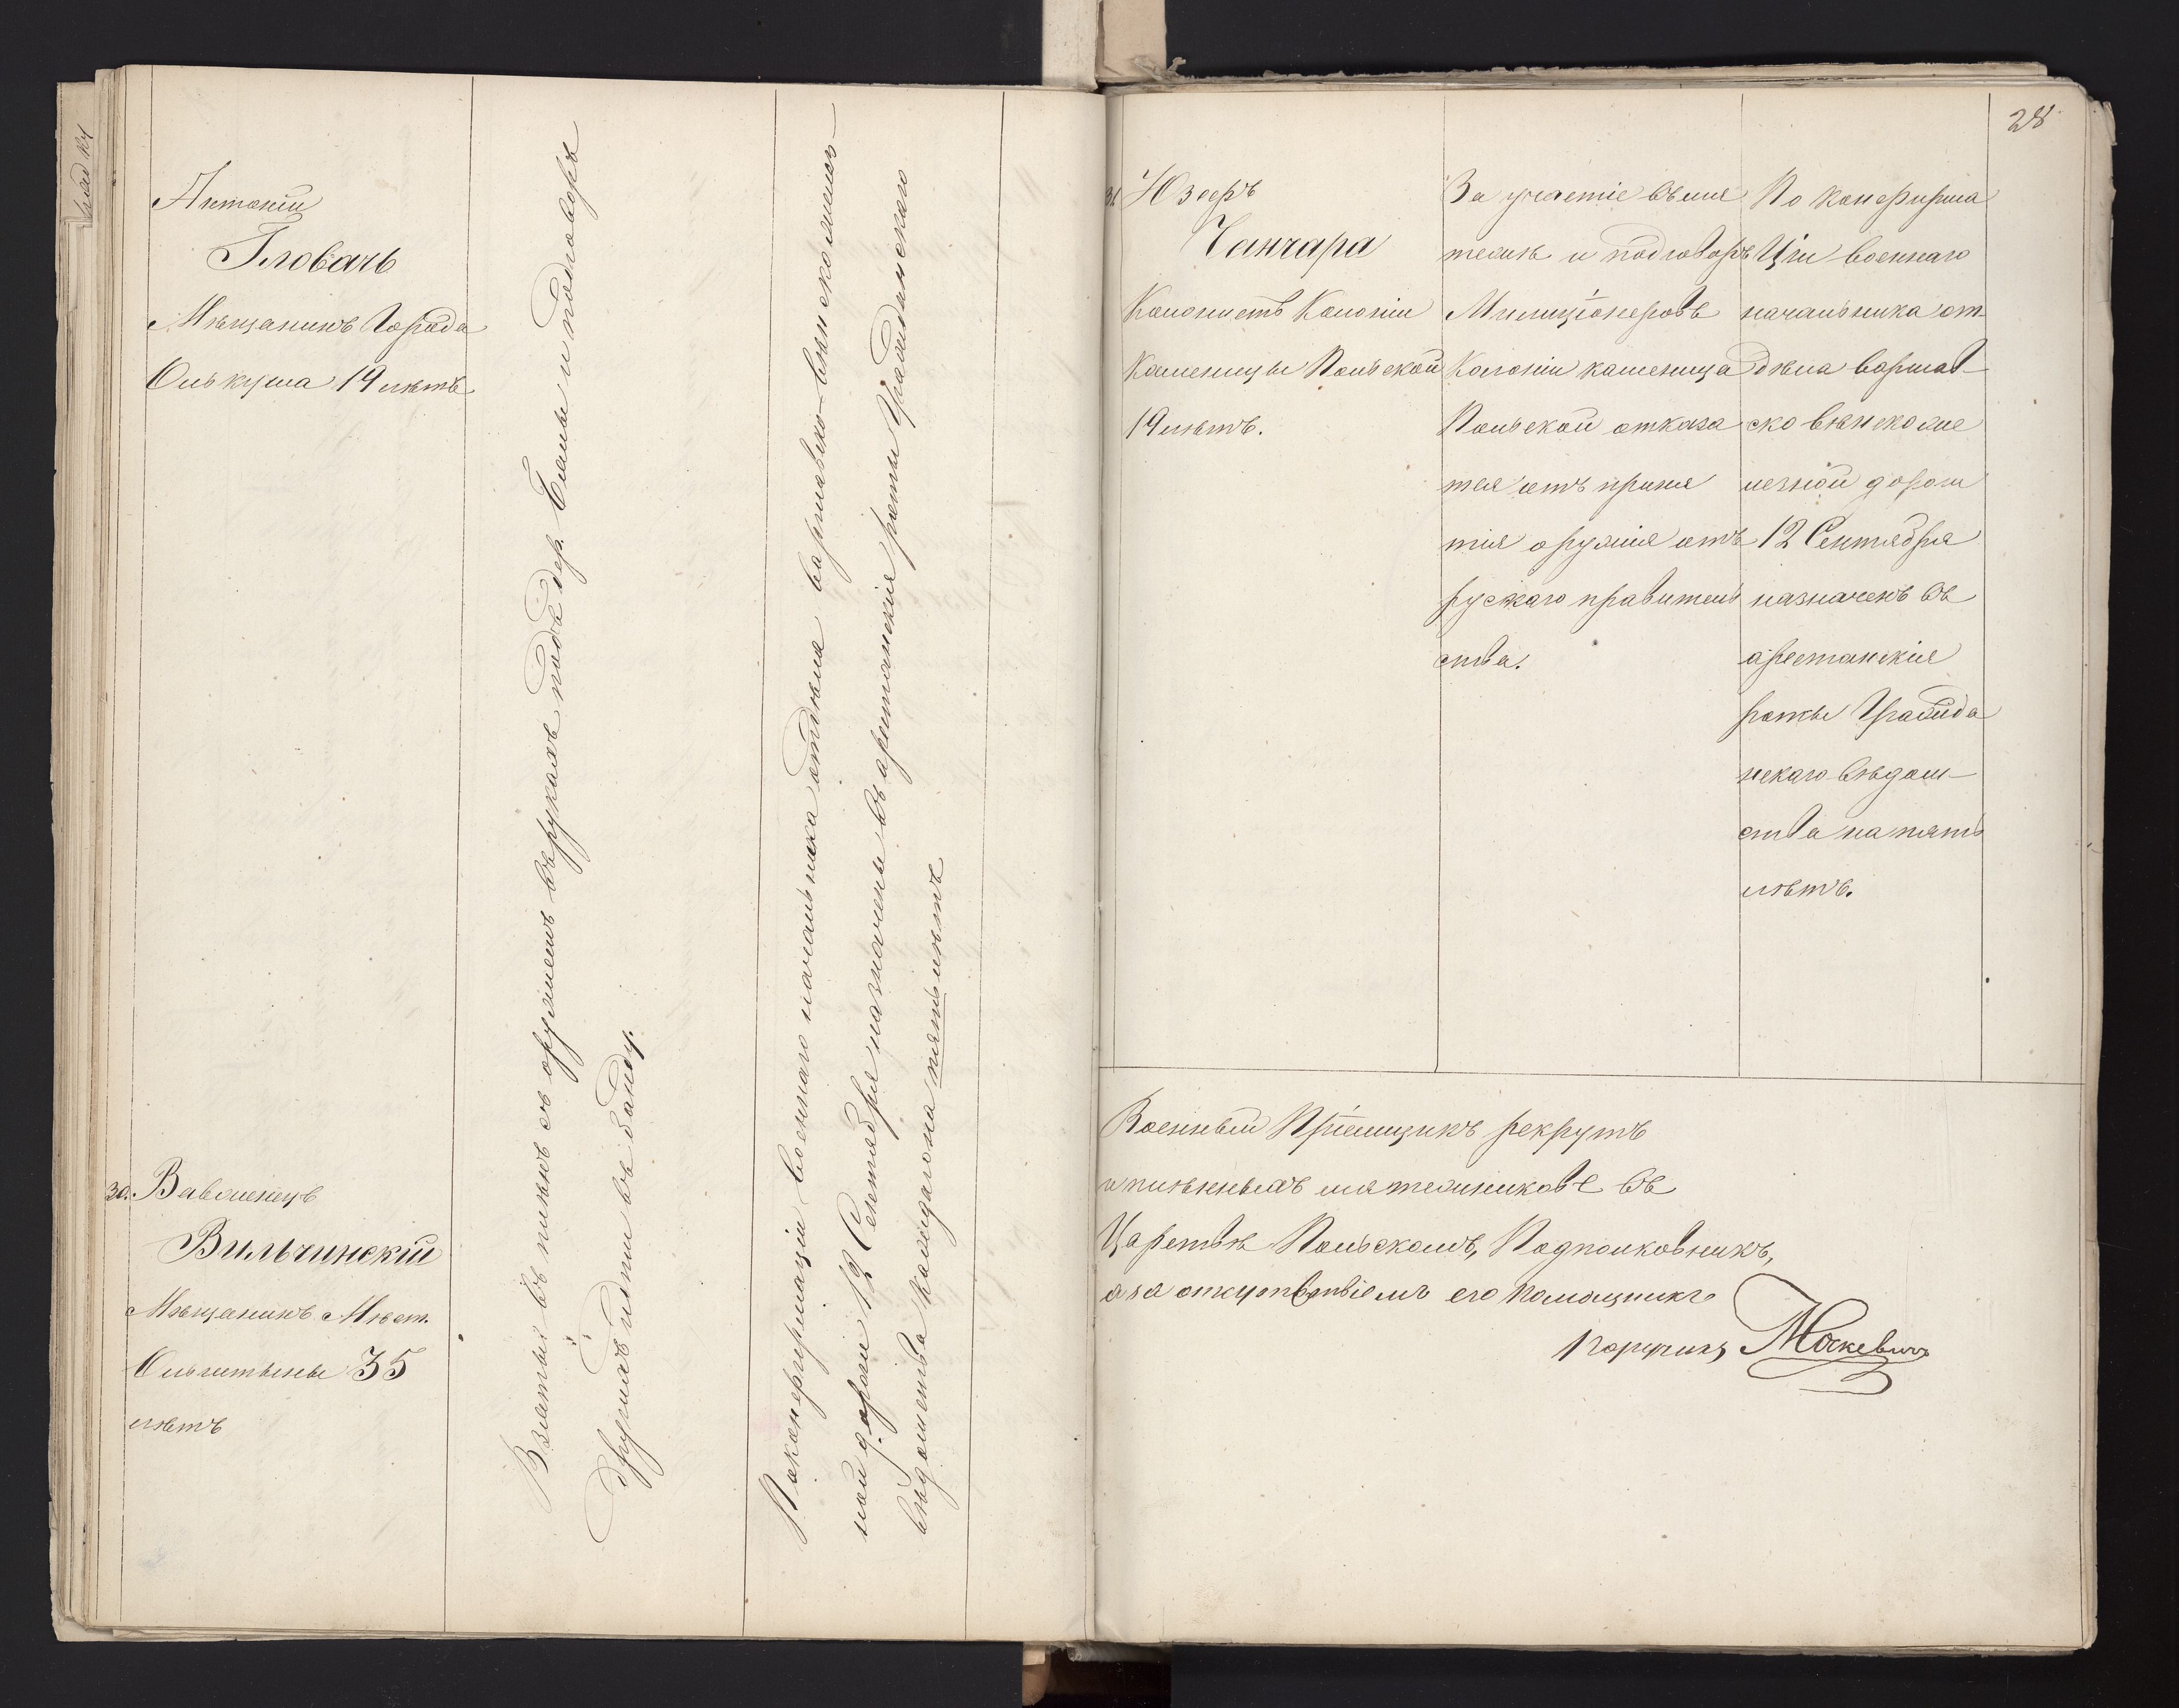 Антоній
Гловачъ
Мѣщанинъ Города
Олькуша 19 лѣтъ
30. Вавженецъ
Вильчинскій
Мѣщанинъ Мѣст.
35
лѣтъ
Взятыя въ плѣнъ съ оружіемъ въ рукахъ подъ дер. и подговоръ
другихъ идти въ банду.
По конфирмаціи военнаго начальника отдѣла варшавско-вѣнской желѣз-
ной дороги 12 Сентября назначены въ арестанскія роты Гражданскаго
вѣдомства каждаго на пять лѣтъ
28
31 Юзефъ
Чанчара
Колонистъ Колоніи
Каменицы Польской
19 лѣтъ.
За участіе въ мя
тежѣ и подговоръ
Милиціонеровъ
Колоніи каменица
Польской отказа
тся отъ приня
тія оружія отъ
рускаго правитель
ства.
По конфирма
Ціи военнаго
начальника от
дѣла варшав
ско вѣнской же
лезной дороги
12 Сентября
назначенъ въ
арестанскія
роты Гражда
нскаго вѣдом-
ства на пять
лѣтъ.
Военный Пріемщикъ рекрутъ
и плѣнныхъ мятежниковъ въ
Царствѣ Польскомъ, Подполковникъ,
а за отсутствіемъ его помощникъ
Поручикъ Москевичъ